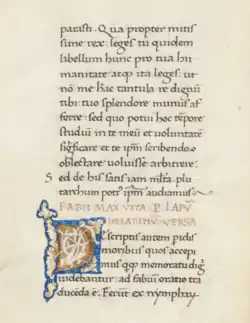 parasti. Qua propter mitis
sime rex leges tu quidem
libellum hunc pro tua hu
manitate atqȝ ita leges: ut
nō me hac tantula re dignū
tibi tuo splendore munus af
ferre sed quo potui hoc tēpore
studiū in te meū et voluntatē
significare et te ipm̄ scribendo
oblectare voluisse arbitrere.
Sed de his satis iam nr̄m plu
tarchum potiꝰ ipm̄ audiamus
FABII MAX VITA P LAPV̄
IN LATINV̄ VERSA
escriptis autem piclis
moribus quos accepi
mus qȝ memoratu dig
videbantur ad fabiū oratio tra
ducēda ē. Ferūt ex nymphaȝ